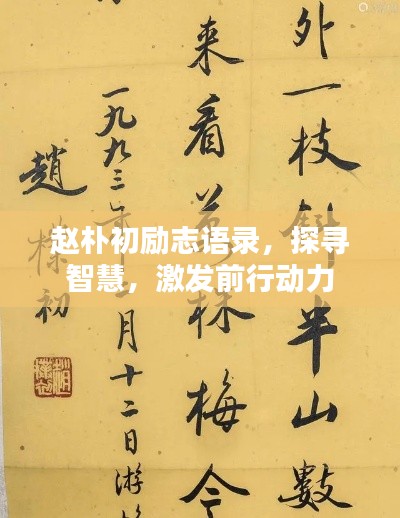 外一枝斜半山數
来看林梅今
一九九三年月十二日游
趙樸初
赵朴初励志语录，探寻
智慧，激发前行动力